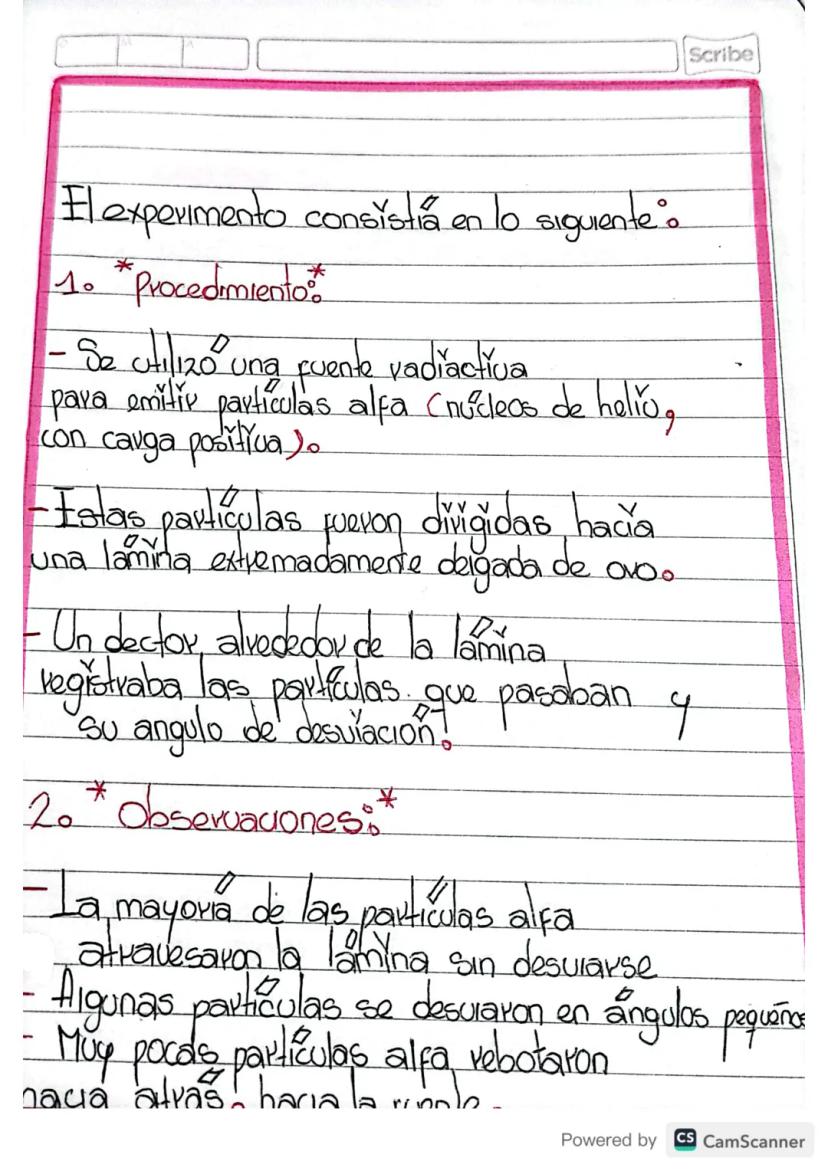 Scribe
El experimento consistía en lo siguiente:
1. *Procedimiento:*
- Se utilizó una fuente radiactiva
para emitir partículas alfa (núcleos de helio,
con carga positiva).
- Estas partículas fueron dirigidas hacia
una lámina extremadamente delgada de oro.
- Un dector alrededor de la lámina
registraba las partículas que pasaban y
su angulo de desviación.
2. *Observaciones:*
- La mayoría de las partículas alfa
atravesaron la lámina sin desviarse
- Algunas partículas se desviaron en ángulos pequeños
- Muy pocas partículas alfa rebotaron
hacia atrás, hacia la
Powered by CS CamScanner